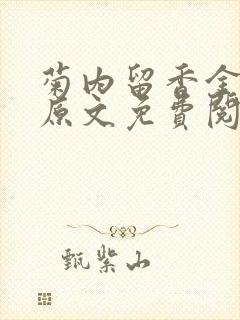 菊内留香全
原文免费阅
甄紫山